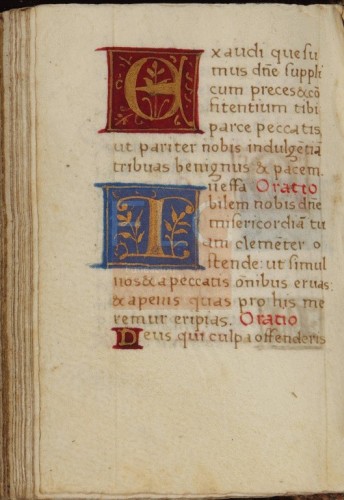 Exaudi quesu
mus dñe suppli
cum preces & cõ
fitentium tibi
parce peccatis,
ut pariter nobis indulgẽtiã
tribuas benignus & pacem.
Ineffa Oratio
bilem nobis dñe
misericordiã tu
am clemẽter o
stende: ut simul
nos & a peccatis õnibus eruas:
& a penis quas pro his me
remur eripias. Oratio
Deus qui culpa offenderis